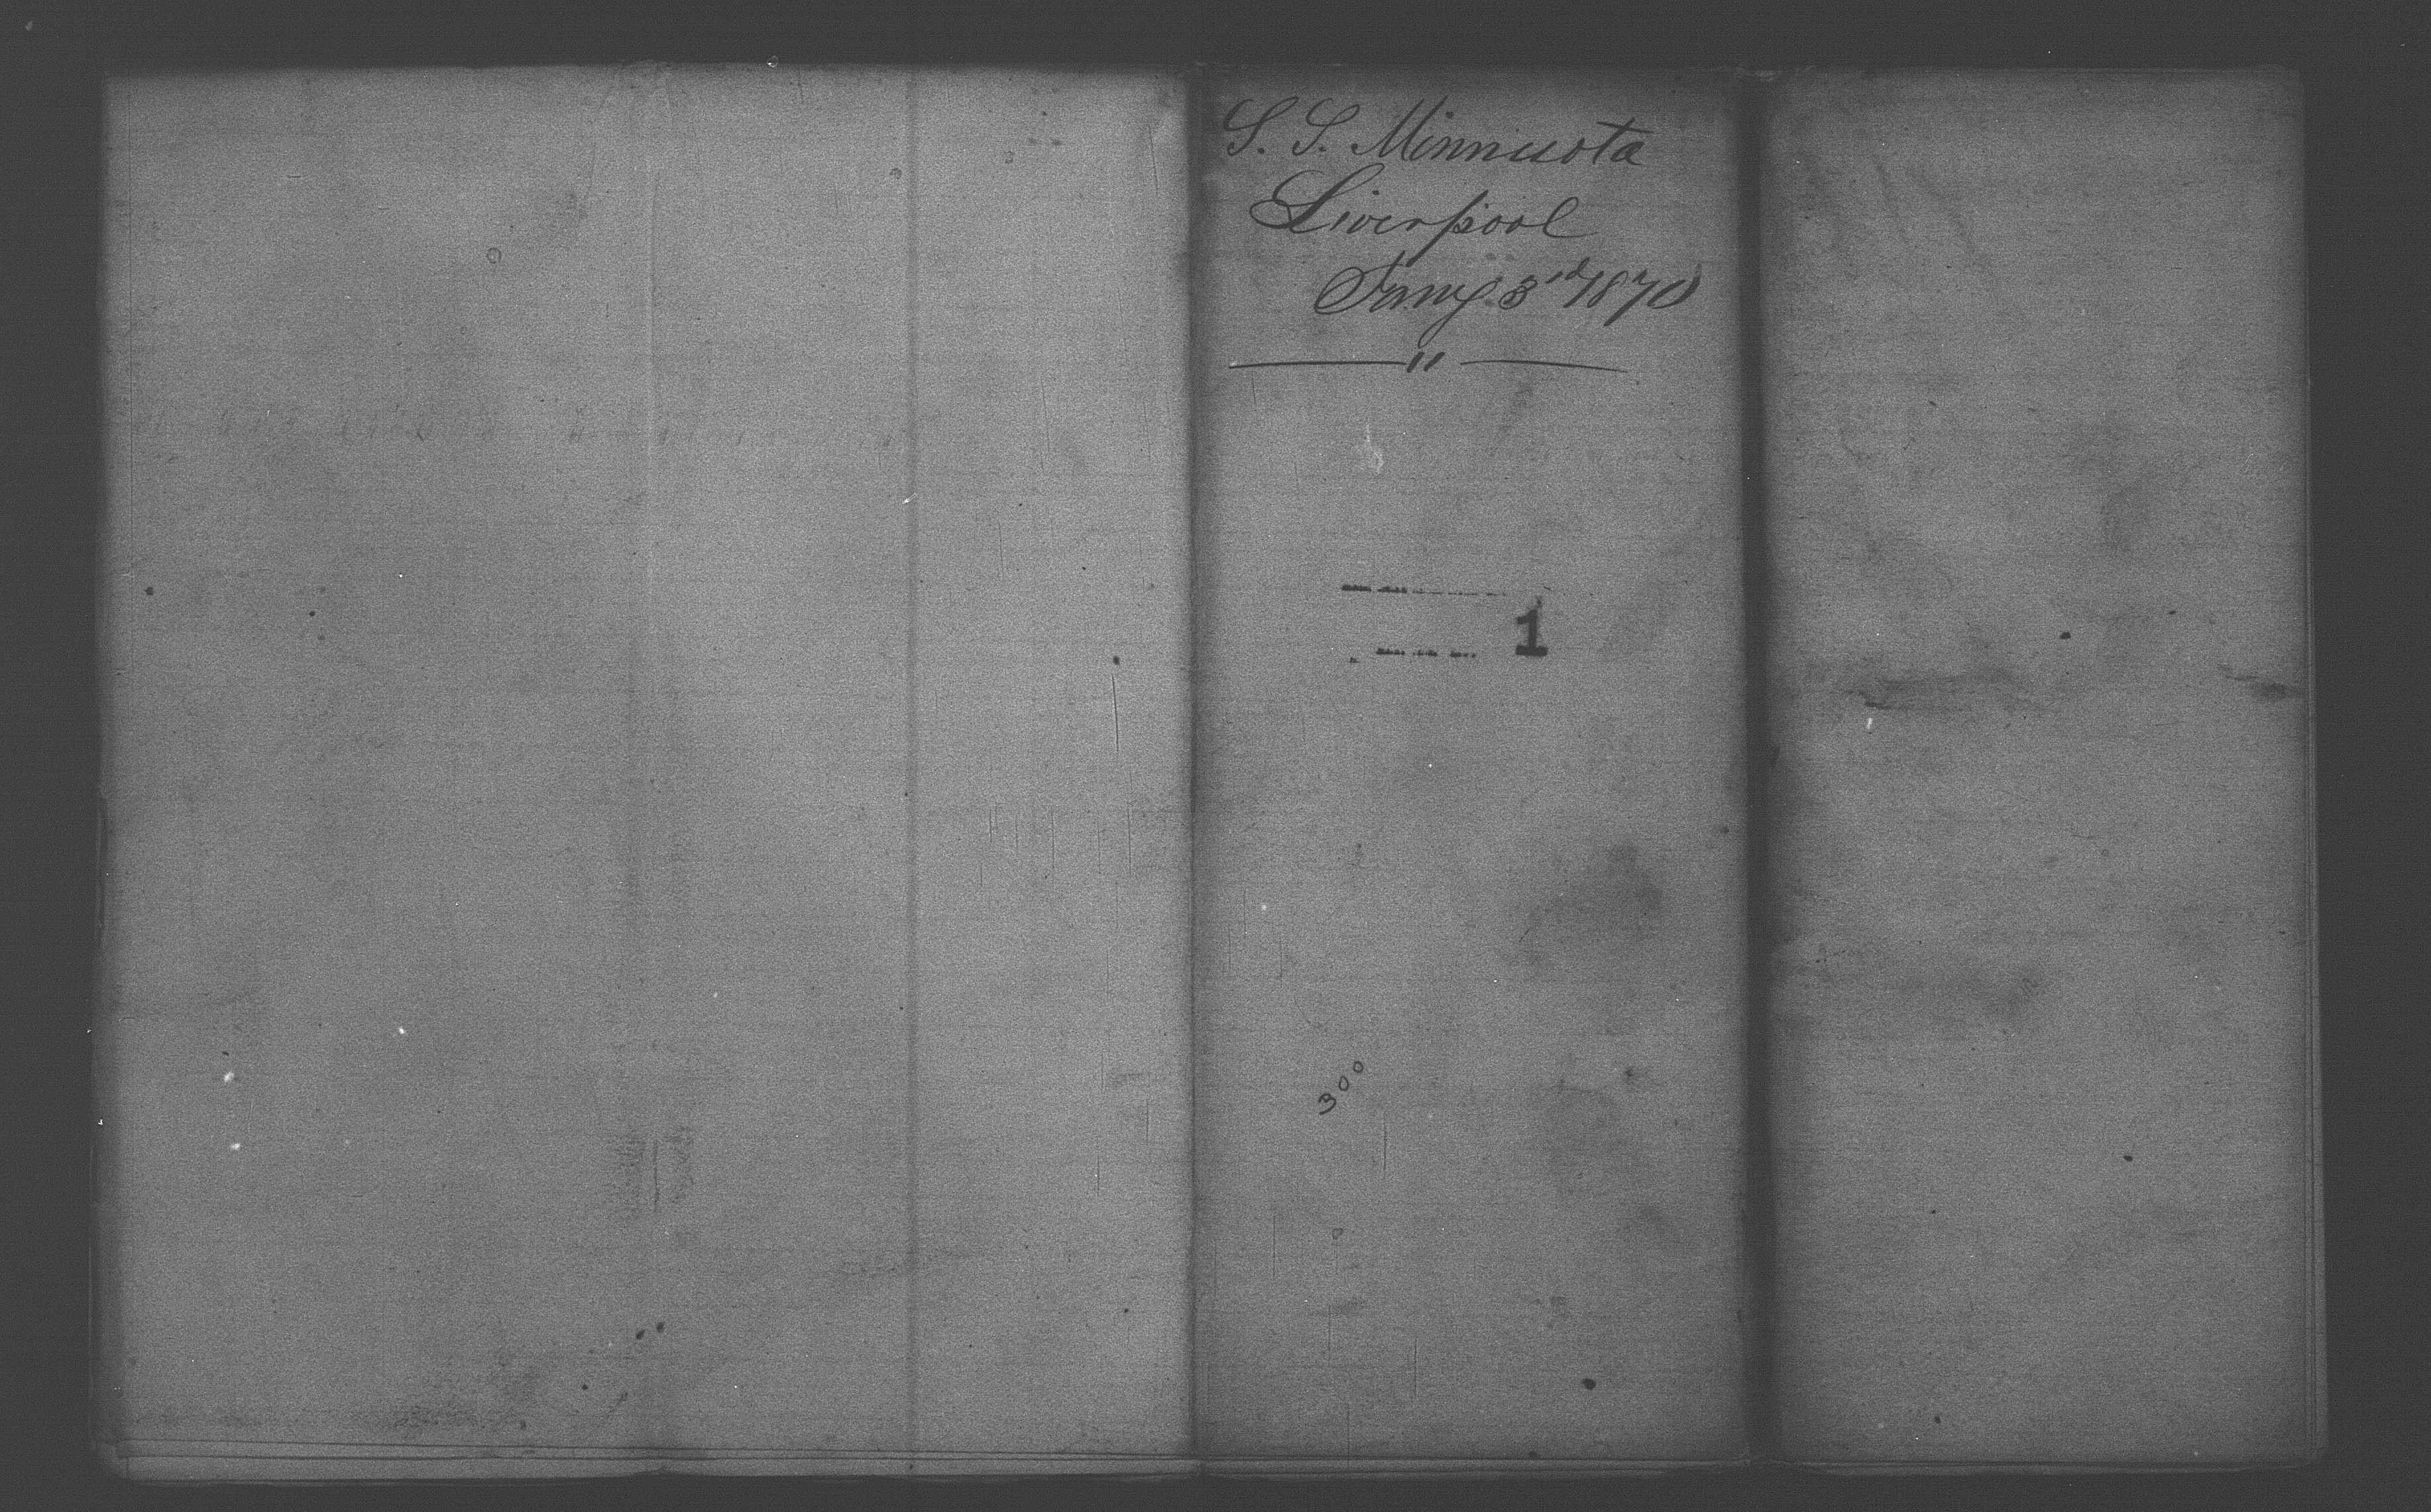 S. S. Minnesota
Liverpool
Jany 3rd 1870
"
1
300